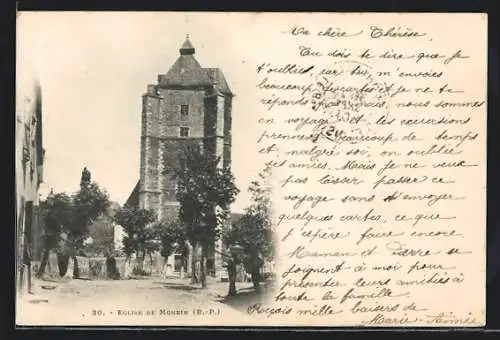 Ma chère Thérèse,
Tu dois te dire que je
t'oublies, car tu, m'envoies
beaucoup de cartes et je ne te
réponds jamais, nous sommes
en voyage et les excursions
prennent beaucoup de temps
et malgré soi, on oublie
ses amies. Mais je ne veux
pas laisser passer ce
voyage sans t'envoyer
quelques cartes, ce que
j'espère faire encore.
Maman et Pierre se
joignent à moi pour
présenter leurs amitiés à
toute la famille.
Reçois mille baisers de
Marie-Aimée
20. - EGLISE DE MONEIN (B.-P.)